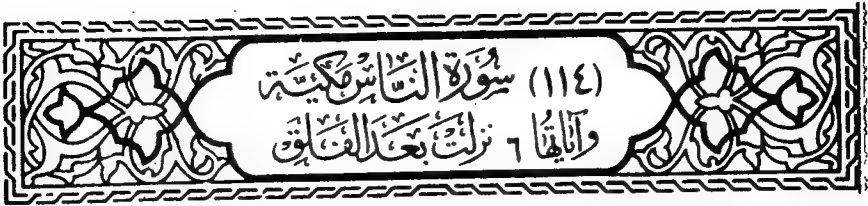 (١١٤) سُورَةُ النَّاسِ مَكِيَّة
وَآيَاتُهَا ٦ نَزَلَتْ بَعْدَ الْفَلَقِ